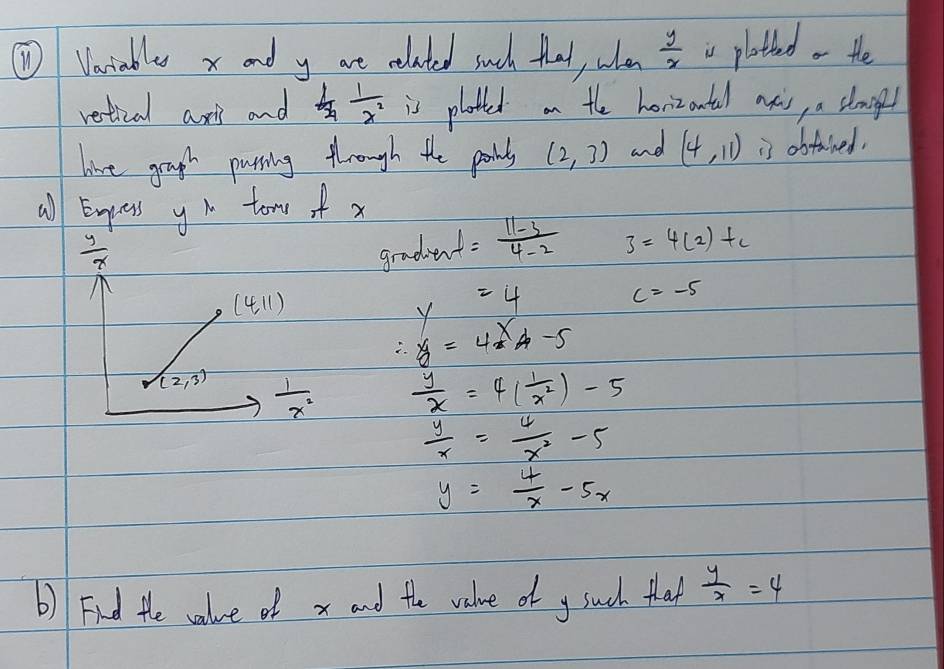 11 Variables x and y are related such that, when y/x is plotted on the
vertical axis and 1/x² is plotted on the horizontal axis, a straight
line graph passing through the points (2, 3) and (4, 11) is obtained.
a) Express y in terms of x
y/x
gradient = 11-3/4-2
3 = 4(2) + c
(4,11)
= 4
c = -5
∴ Y = 4X - 5
(2,3)
1/x²
y/x = 4(1/x²) - 5
y/x = 4/x² - 5
y = 4/x - 5x
b) Find the value of x and the value of y such that y/x = 4